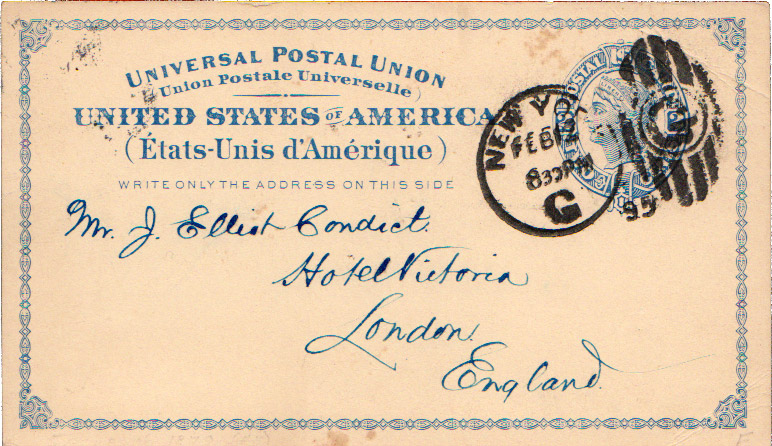 UNIVERSAL POSTAL UNION
(Union Postale Universelle)
UNITED STATES OF AMERICA
(États-Unis d'Amérique)
WRITE ONLY THE ADDRESS ON THIS SIDE
NEW YO
FEB
830PM
G
95
Mr. J. Elliot Condict.
Hotel Victoria
London.
England.